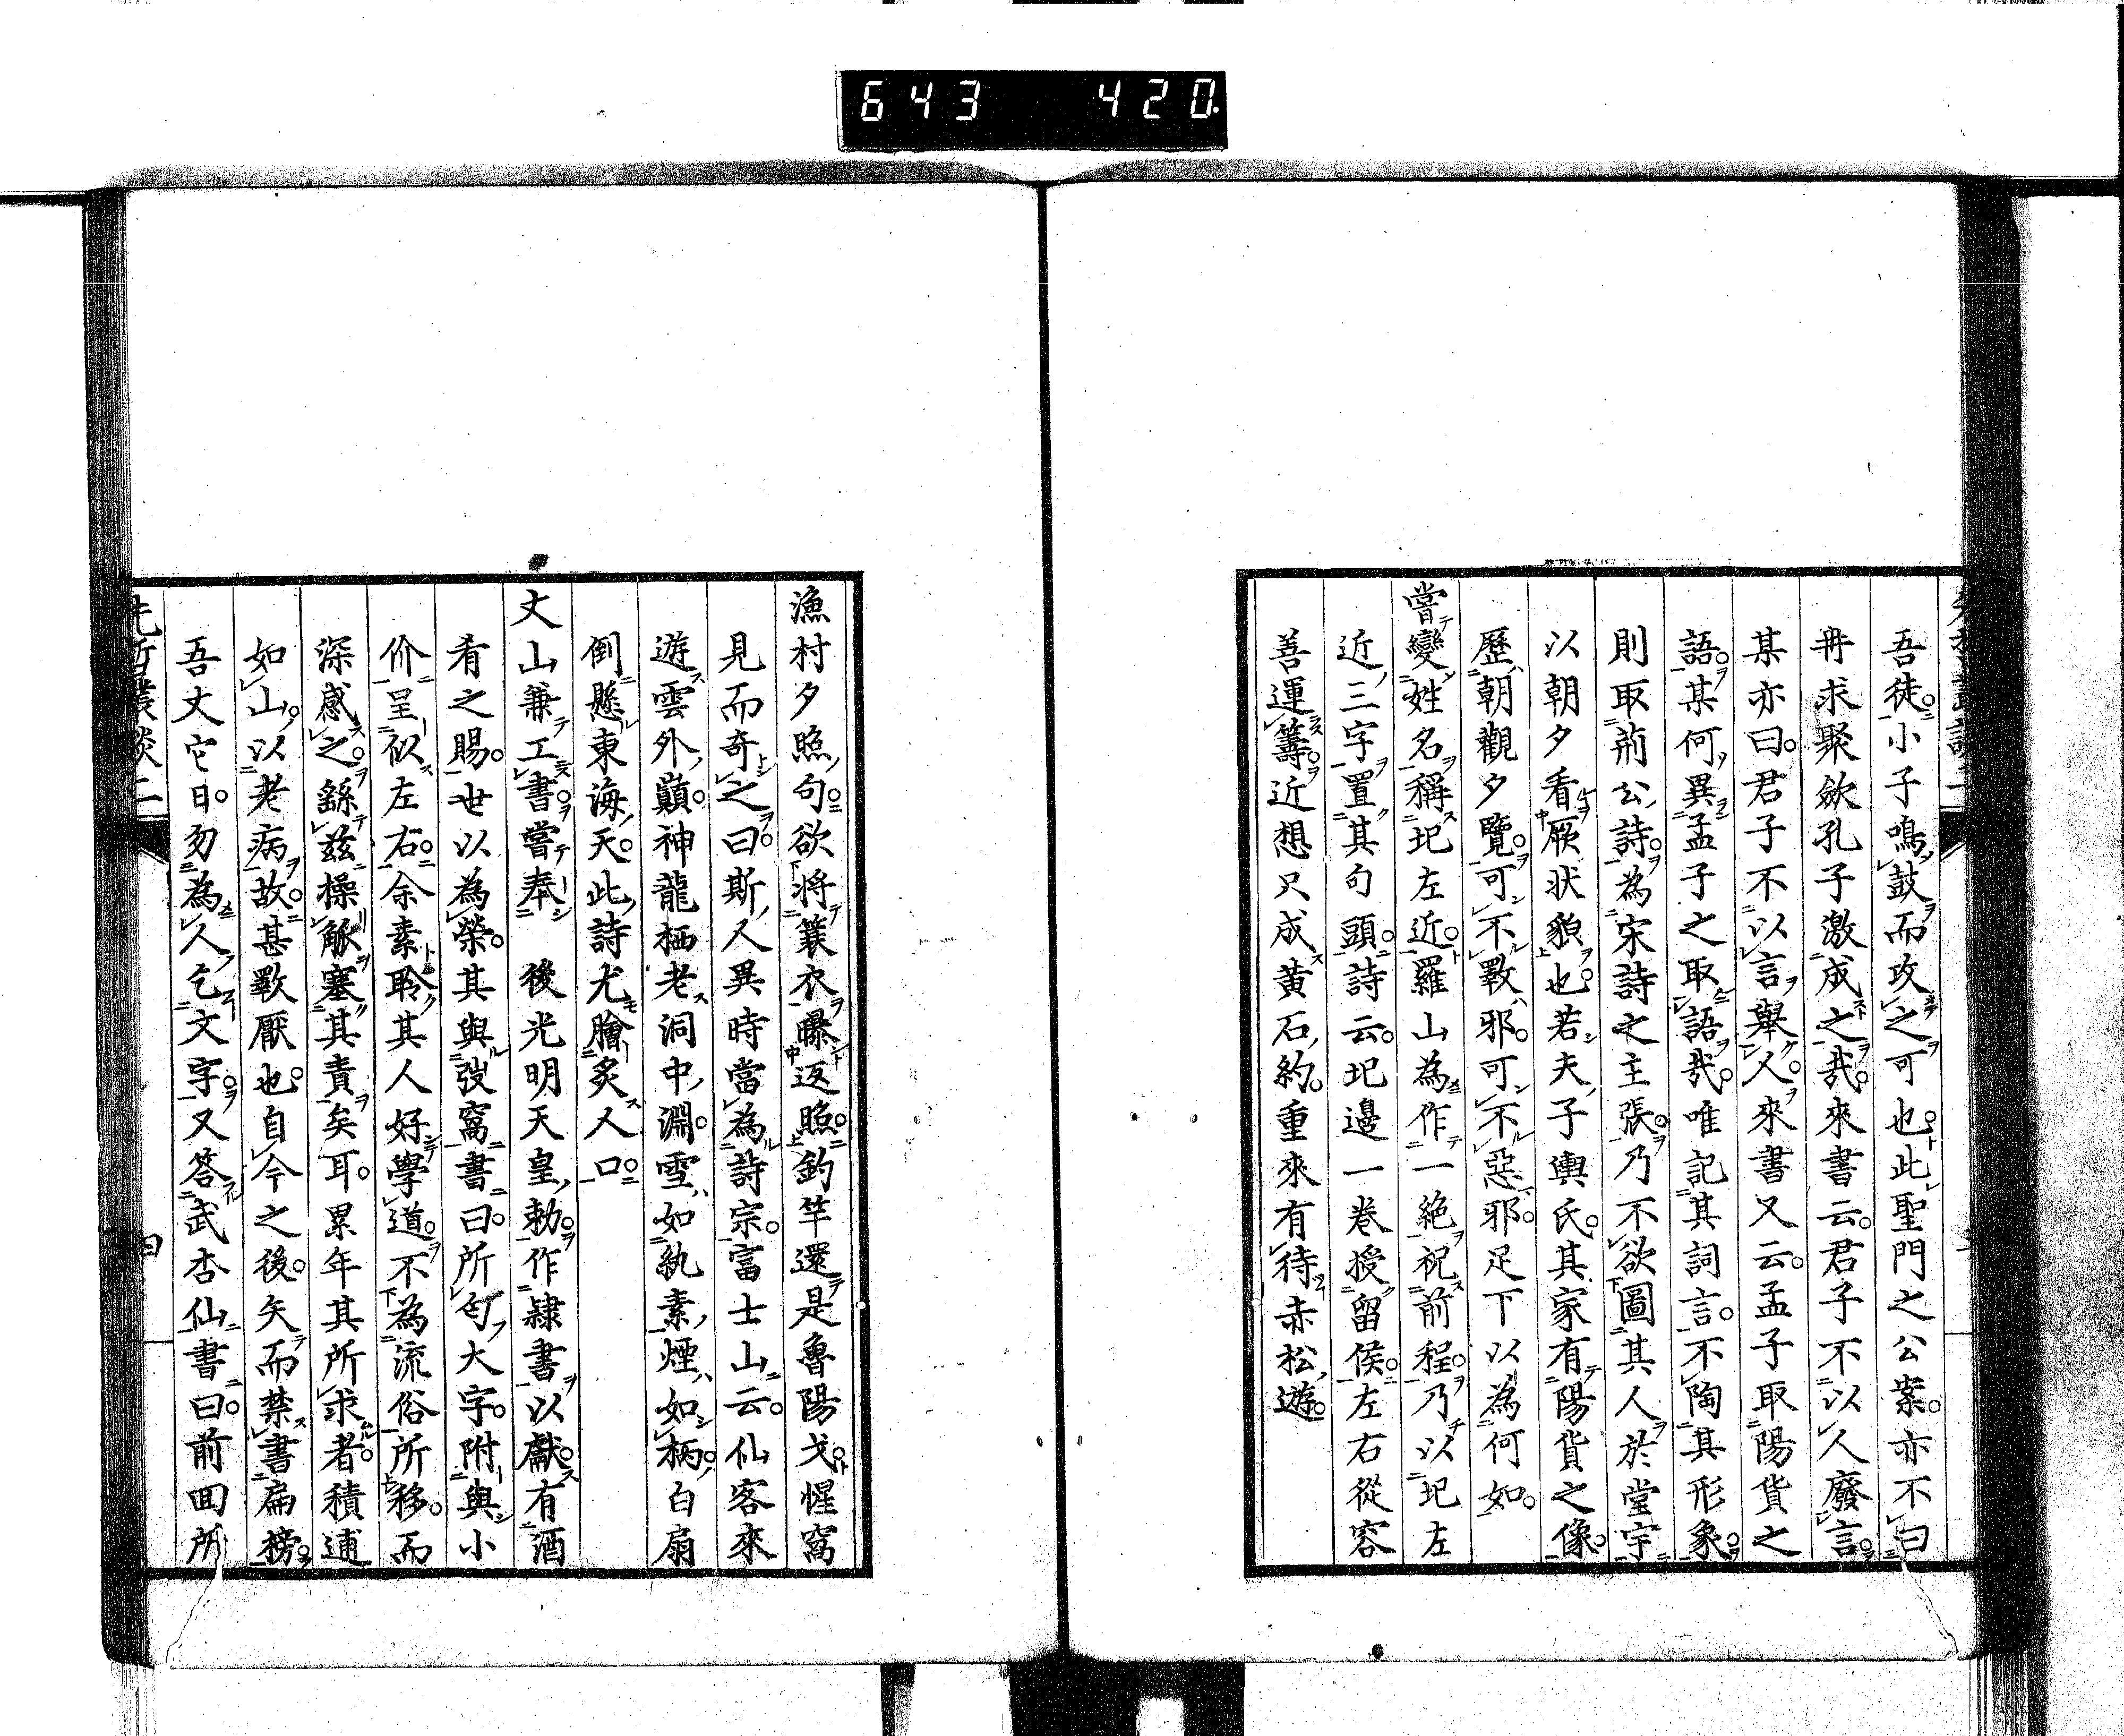 643 420
吾徒小子鳴鼓而攻之可也此聖門之公案亦不曰
冉求聚斂孔子激成之哉來書云君子不以人廢言
某亦曰君子不以言舉人來書又云孟子取陽貨之
語某何異孟子之取語哉唯記其詞言不陶其形象
則取荊公詩為宋詩之主張乃不欲圖其人於堂宇
以朝夕看厥状貌也若夫子輿氏其家有陽貨之像
歷朝觀夕覽可不斁邪可不惡邪足下以為何如
嘗變姓名稱圯左近羅山為作一絶祝前程乃以圯左
近三字置其句頭詩云圯邊一卷授留侯左右從容
善運籌近想只成黄石約重來有待赤松遊
漁村夕照句欲將簑衣曝返照釣竿還是魯陽戈惺窩
見而奇之曰斯人異時當為詩宗富士山云仙客來
遊雲外巔神龍栖老洞中淵雪如紈素煙如柄白扇
倒懸東海天此詩尤膾炙人口
丈山兼工書嘗奉 後光明天皇勅作隷書以獻有酒
肴之賜世以為榮其與弢窩書曰所匄大字附與小
价呈似左右余素聆其人好學道不為流俗所移而
深感之繇茲操觚塞其責矣耳累年其所求者積逋
如山以老病故甚斁厭也自今之後矢而禁書扁榜
吾丈它日勿為人乞文字又答武杏仙書曰前回所
先哲叢談二
四